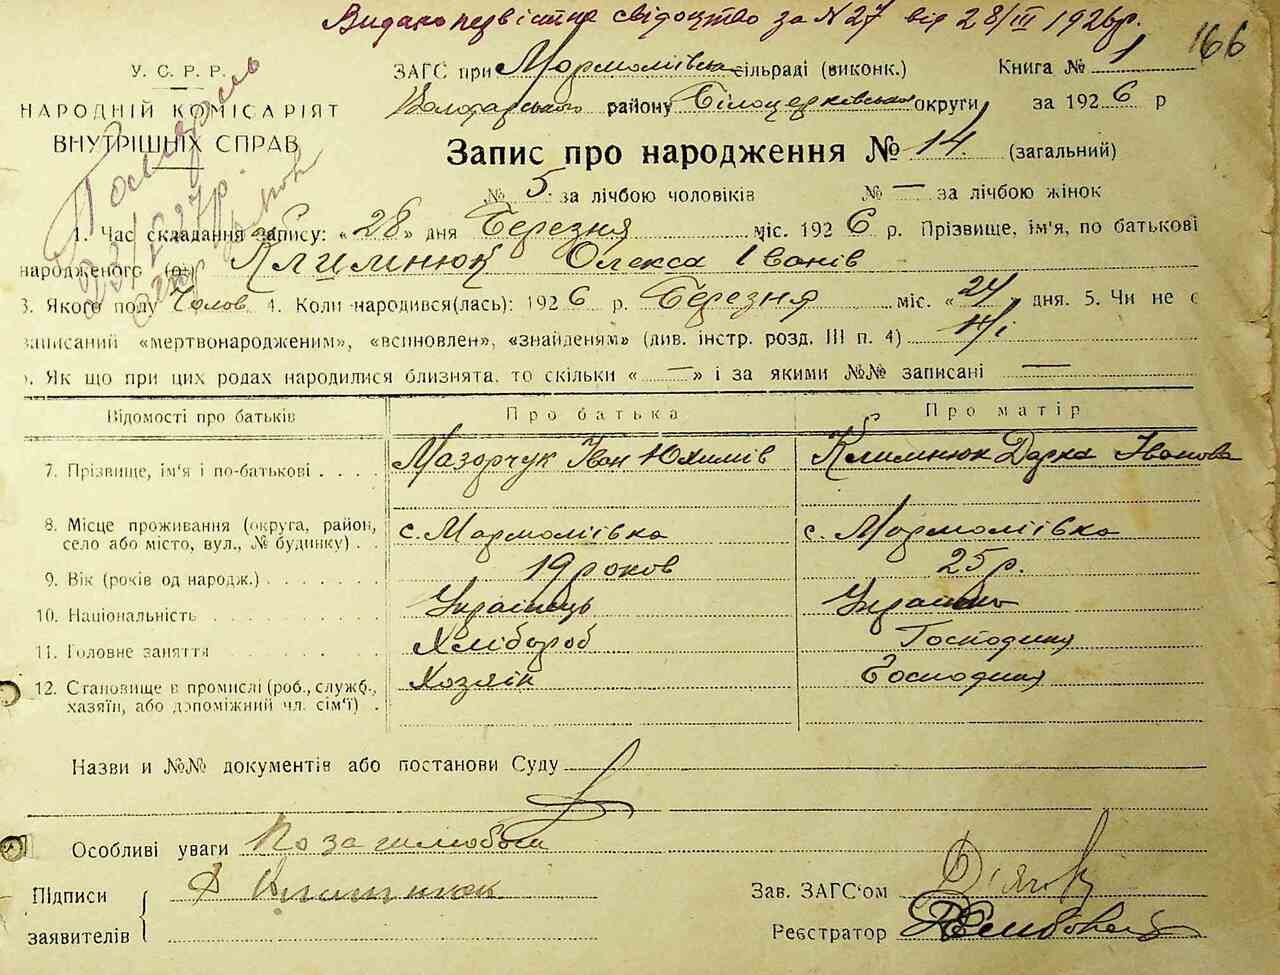 Видано первістне свідоцтво за № 27 від 28/III 1926 р.
166
У. С. Р. Р.
НАРОДНІЙ КОМІСАРІЯТ
ВНУТРІШНІХ СПРАВ
ЗАГС при Мармоліївській сільраді (виконк.) Книга № 1
району Білоцерківської округи за 1926 р
Запис про народження № 14. (загальний)
№ 5. за лічбою чоловіків № — за лічбою жінок
1. Час складання запису: « 28 » дня Березня міс. 1926 р. Прізвище, ім'я, по батькові
народженого (ої) Климнюк Олекса Іванів
3. Якого полу Чолов. 4. Коли народився(лась): 1926 р. Березня міс. « 24 » дня. 5. Чи не є
записаний «мертвонародженим», «всиновлен», «знайденям» (див. інстр. розд. III п. 4) Ні
. Як що при цих родах народилися близнята, то скільки « — » і за якими №№ записані —
Відомості про батьків Про батька Про матір
7. Прізвище, ім'я і по-батькові Мазорчук Іван Юхимів Климнюк Дарка Іванова
8. Місце проживання (округа, район, село або місто, вул., № будинку) с. Мармоліївка с. Мармоліївка
9. Вік (років од народж.) 19 роков 25 р.
10. Національність Українець Українка
11. Головне заняття Хлібороб Господиня
12. Становище в промислі (роб., служб., хазяїн, або допоміжний чл. сім'ї) Хозяїн Господиня
Назви и №№ документів або постанови Суду
Особливі уваги Поза шлюбом
Підписи
заявителів
Д Климнюк
Зав. ЗАГС'ом
Реєстратор